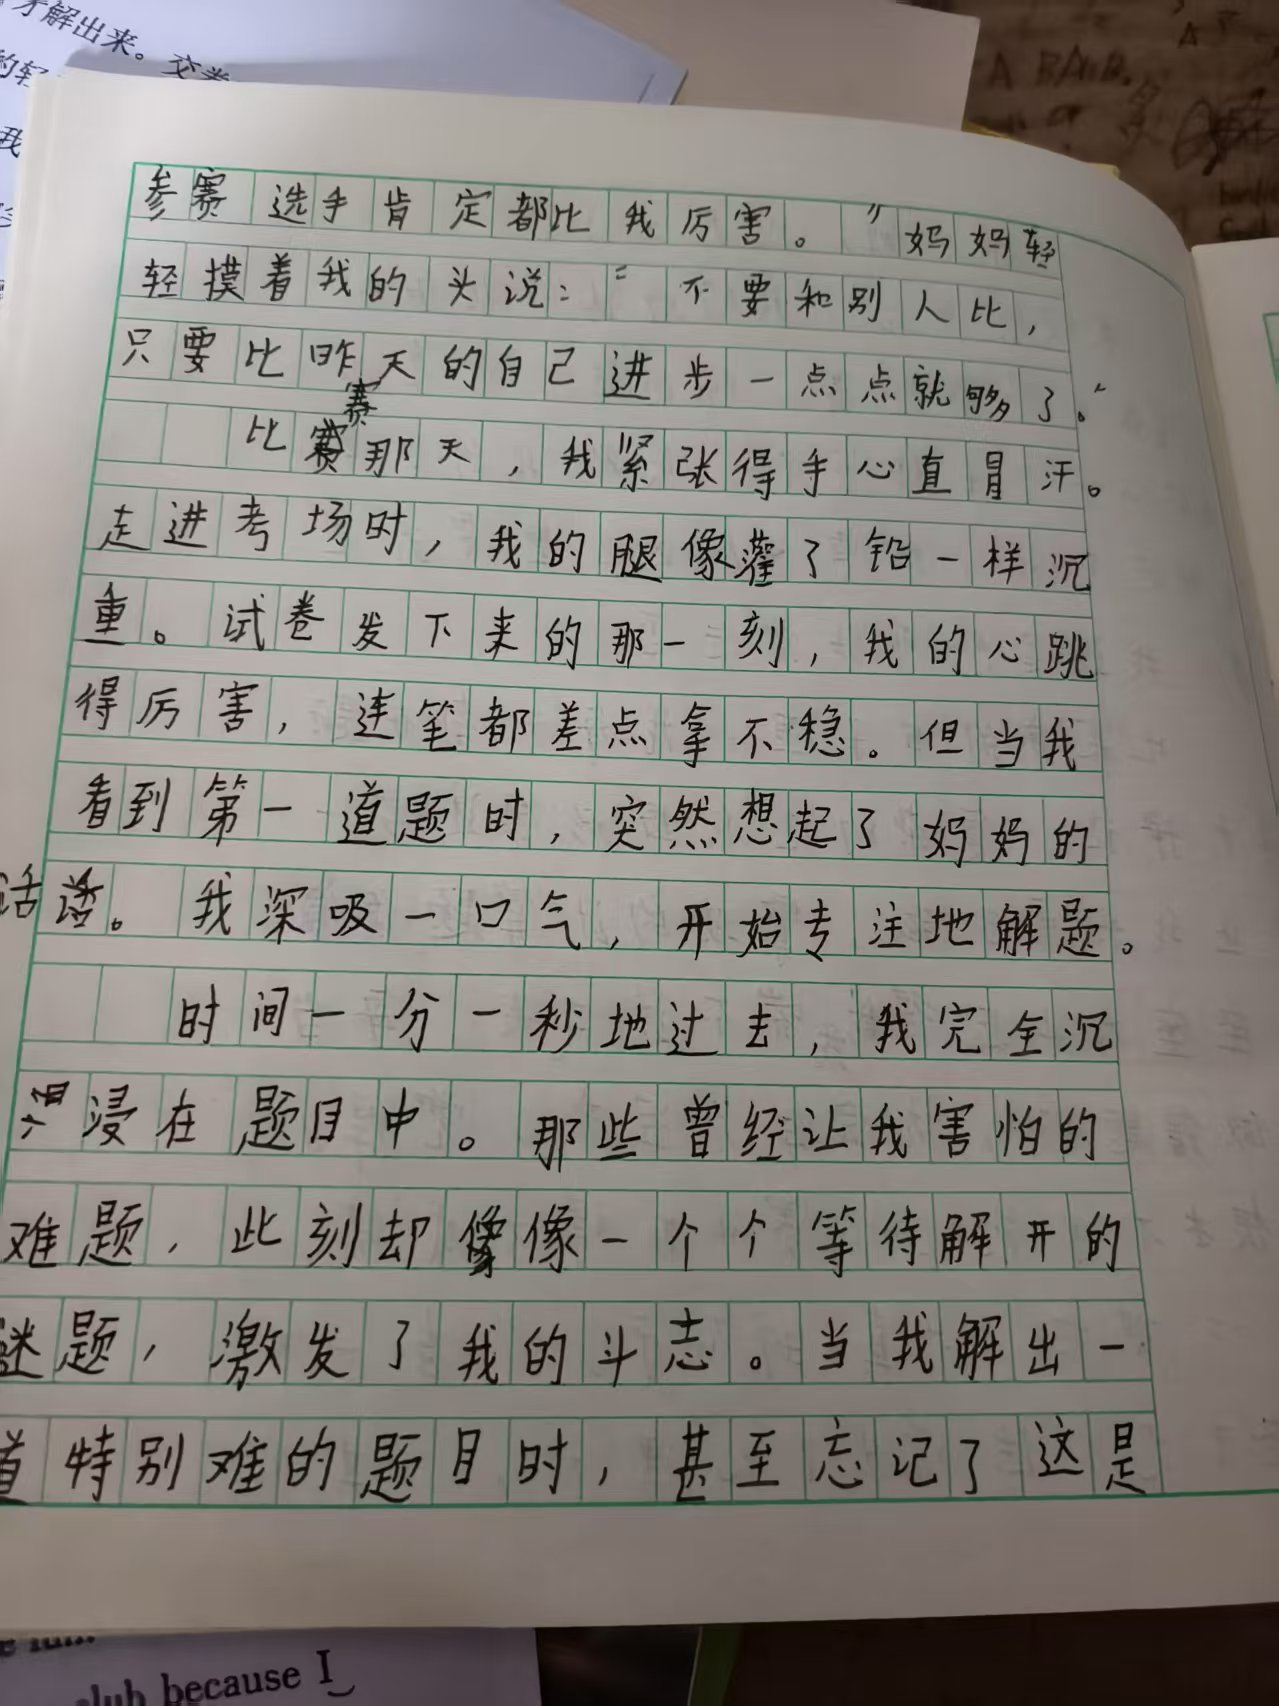 才解出来。交卷
的轻
我
参赛选手肯定都比我厉害。”妈妈轻
轻摸着我的头说：“不要和别人比，
只要比昨天的自己进步一点点就够了。”
比赛那天，我紧张得手心直冒汗。
走进考场时，我的腿像灌了铅一样沉
重。试卷发下来的那一刻，我的心跳
得厉害，连笔都差点拿不稳。但当我
看到第一道题时，突然想起了妈妈的
话。我深吸一口气，开始专注地解题。
时间一分一秒地过去，我完全沉
浸在题目中。那些曾经让我害怕的
难题，此刻却像一个个等待解开的
谜题，激发了我的斗志。当我解出一
道特别难的题目时，甚至忘记了这是
club because I